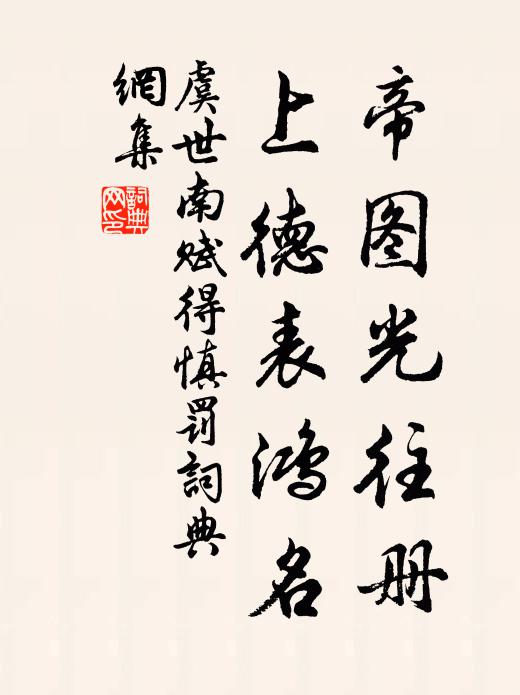 帝图光往册
上德表鸿名
虞世南赋得慎罚詞典
網集
詞典网印